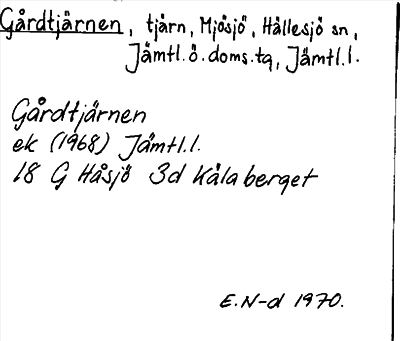 Gårdtjärnen, tjärn, Mjösjö, Hällesjö sn,
Jämtl.ö.doms.tg, Jämtl.l.
Gårdtjärnen
ek (1968) Jämtl.l.
18 G Håsjö 3d Kålaberget
E.N-d 1970.